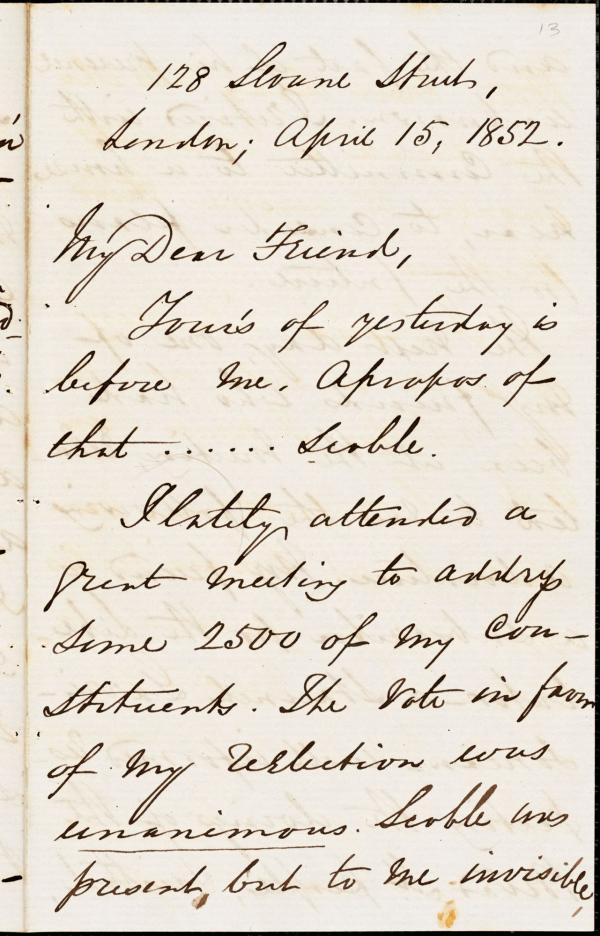 13
128 Sloane Street,
London; April 15, 1852.
My Dear Friend,
Your's of yesterday is
before me. Apropos of
that ...... Scoble.
I lately attended a
great meeting to address
some 2500 of my Con-
stituents. The Vote in favor
of my reelection was
unanimous. Scoble was
present, but to me invisible,